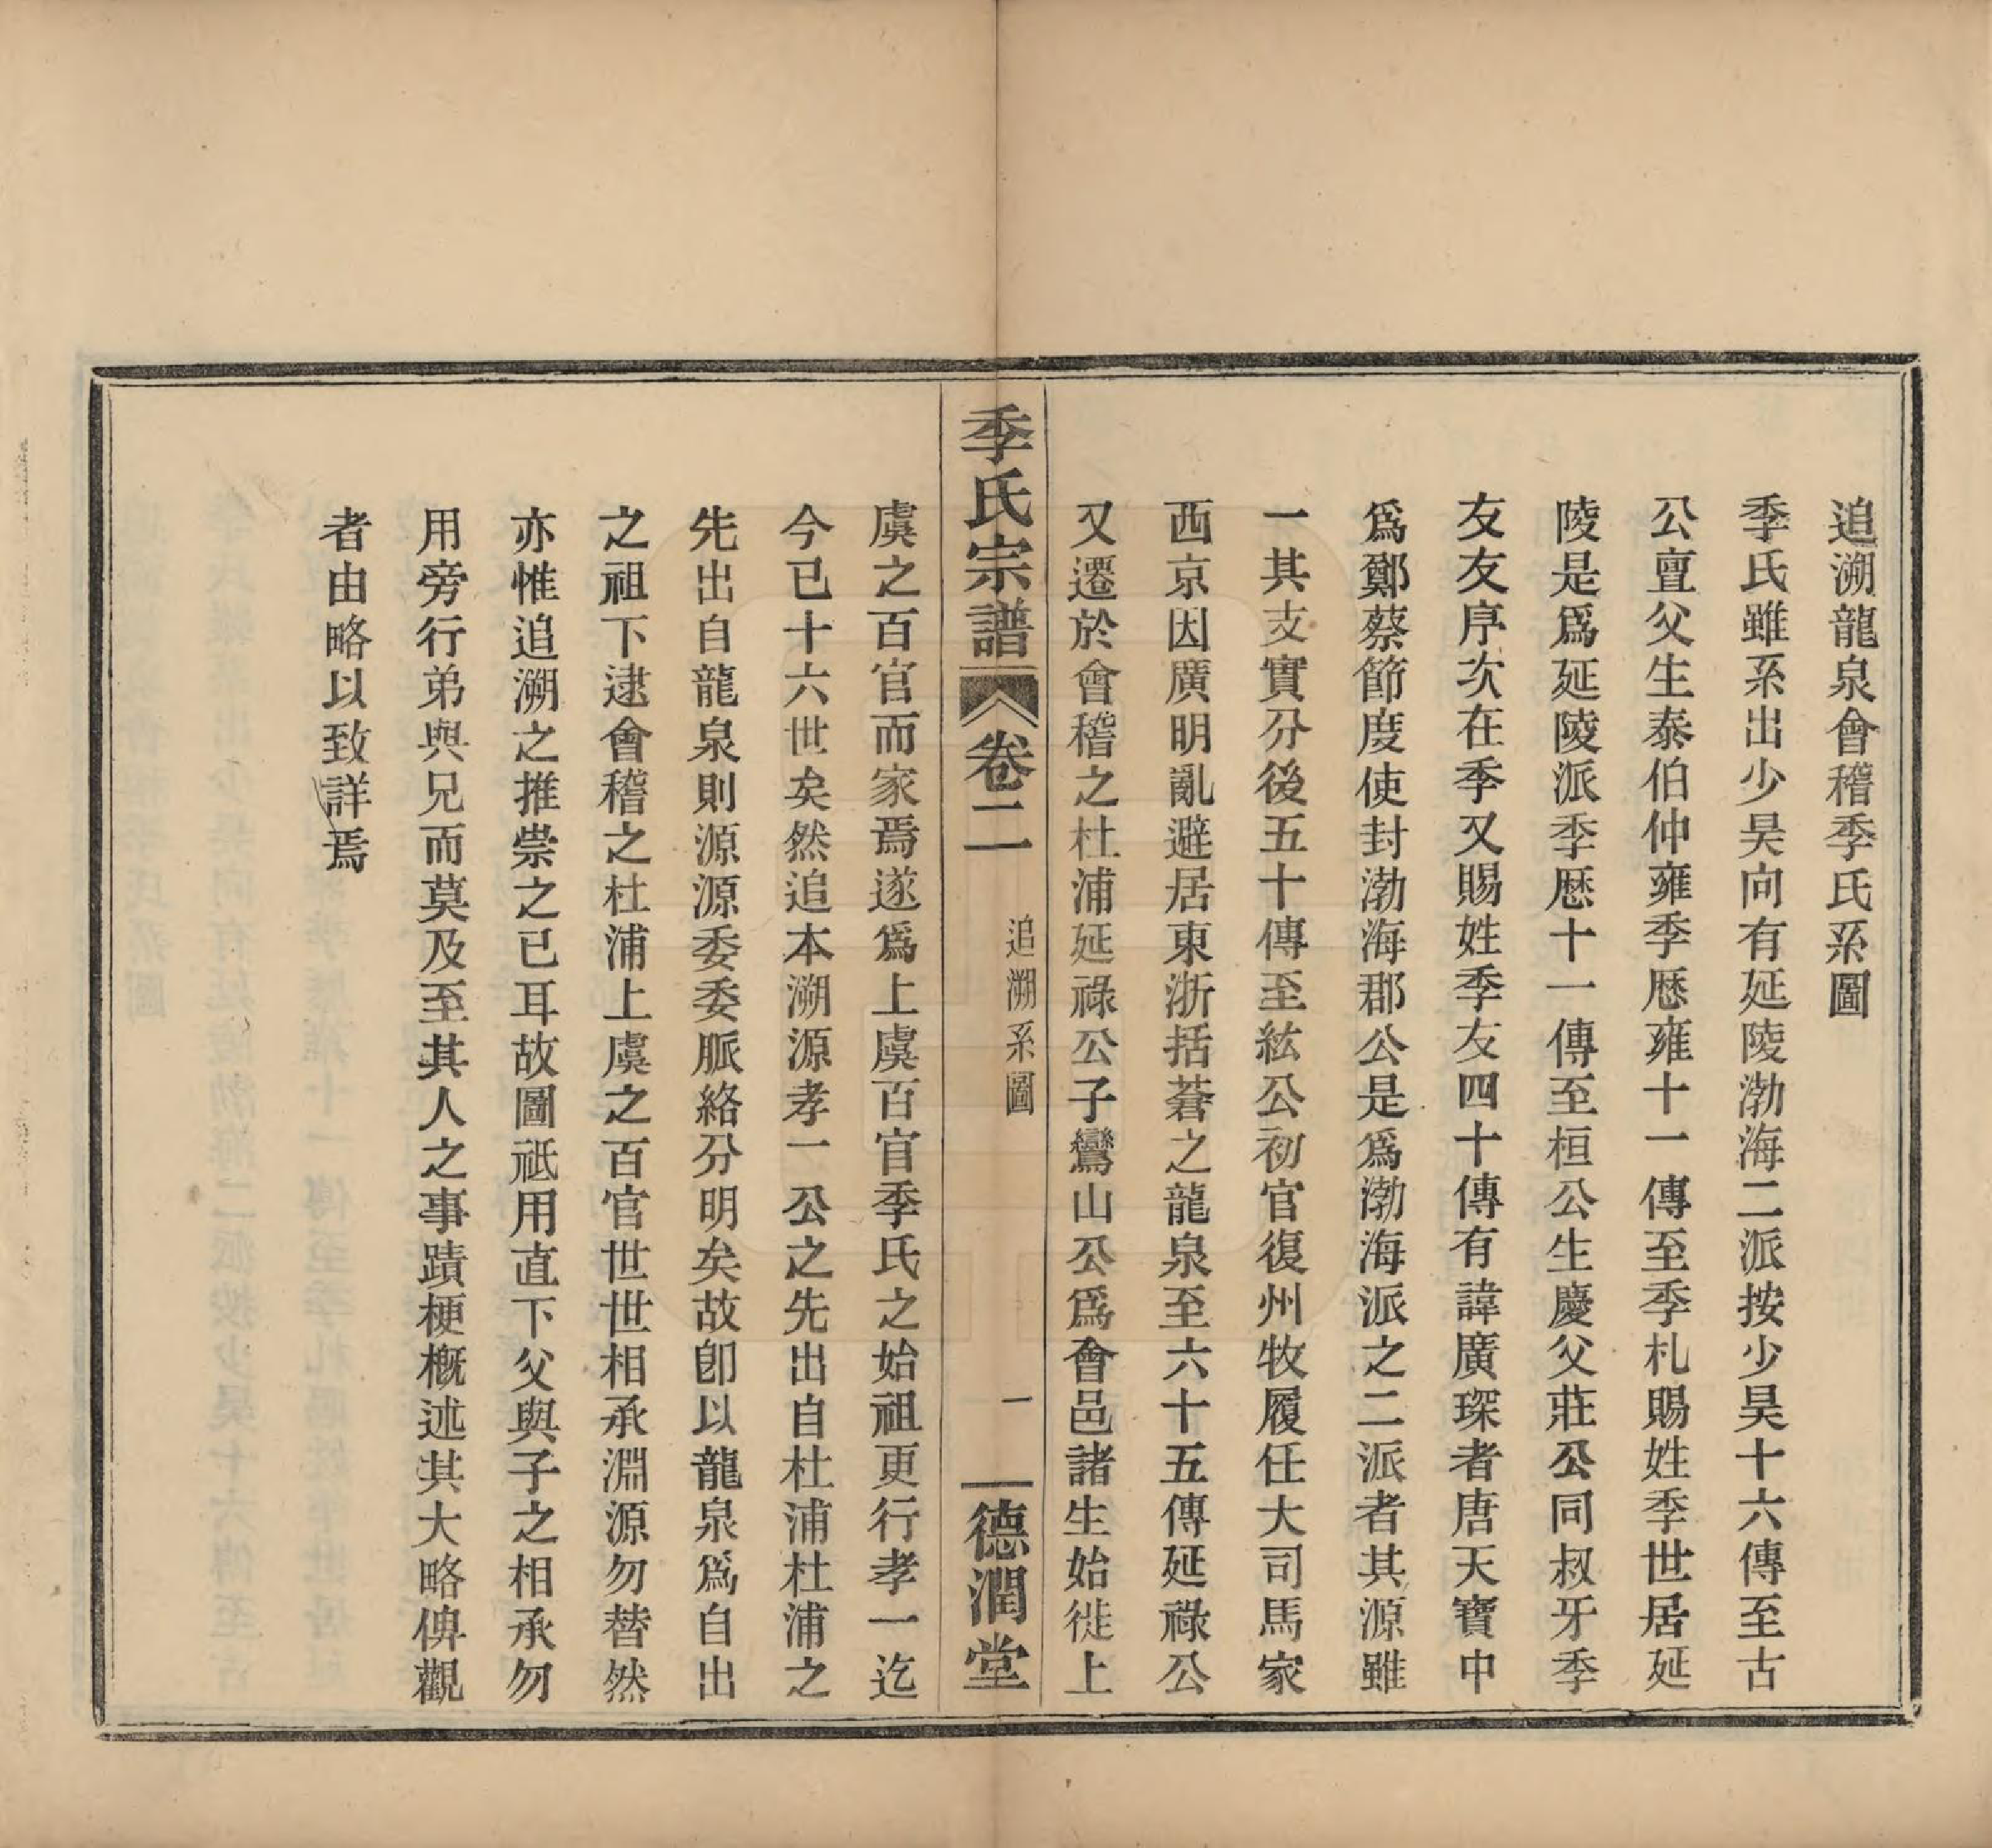 追溯龍泉會稽季氏系圖
季氏雖系出少昊向有延陵渤海二派按少昊十六傳至古
公亶父生泰伯仲雍季歷雍十一傳至季札賜姓季世居延
陵是爲延陵派季歷十一傳至桓公生慶父莊公同叔牙季
友友序次在季又賜姓季友四十傳有諱廣琛者唐天寶中
爲鄭蔡節度使封渤海郡公是爲渤海派之二派者其源雖
一其支實分後五十傳至紘公初官復州牧履任大司馬家
西京因廣明亂避居東浙括蒼之龍泉至六十五傳延祿公
又遷於會稽之杜浦延祿公子鸞山公爲會邑諸生始徙上
季氏宗譜
卷二
追溯系圖
一
德潤堂
虞之百官而家焉遂爲上虞百官季氏之始祖更行孝一迄
今已十六世矣然追本溯源孝一公之先出自杜浦杜浦之
先出自龍泉則源源委委脈絡分明矣故卽以龍泉爲自出
之祖下逮會稽之杜浦上虞之百官世世相承淵源勿替然
亦惟追溯之推崇之已耳故圖祗用直下父與子之相承勿
用旁行弟與兄而莫及至其人之事蹟梗概述其大略俾觀
者由略以致詳焉